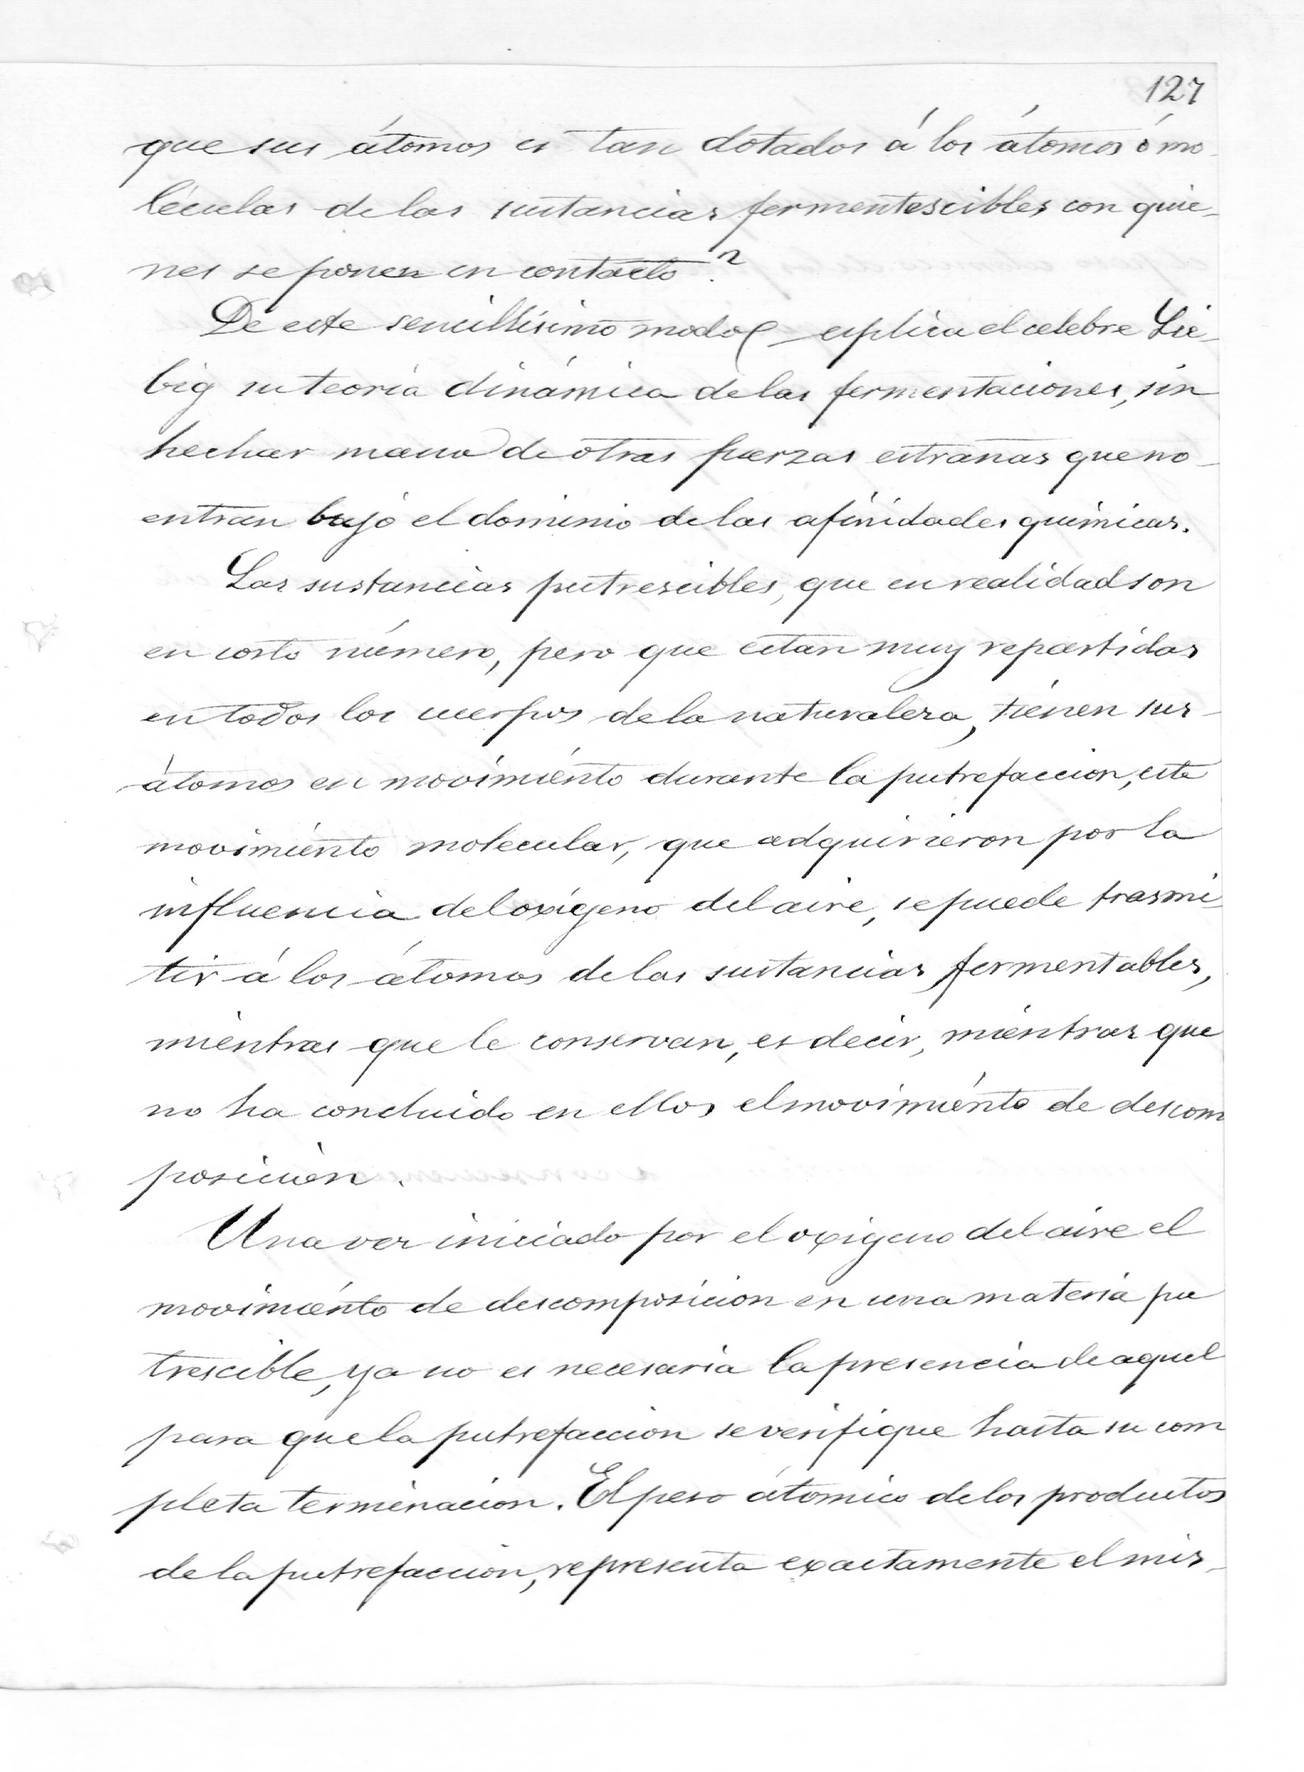 127
que sus átomos es tan dotados á los átomos ó mo
léculas de las sustancias fermentescibles con quie-
nes se ponen en contacto?
De este sencillísimo modo esplica el celebre Lie-
big su teoría dinámica de las fermentaciones, sin
hechar mano de otras fuerzas estrañas que no
entran bajo el dominio de las afinidades químicas.
Las sustancias putrescibles, que en realidad son
en corto número, pero que estan muy repartidas
en todos los cuerpos de la naturaleza, tienen sus
átomos en movimiénto durante la putrefaccion, este
movimiénto molecular, que adquirieron por la
influencia del oxígeno del aire, se puede trasmi-
tir á los átomos de las sustancias fermentables,
miéntras que le conservan, es decir, miéntras que
no ha concluido en ellos el movimiénto de descom
posicion.
Una vez iniciado por el oxigeno del aire el
movimiénto de descomposicion en una materia pu
trescible, ya no es necesaria la presencia de aquel
para que la putrefaccion se verifique hasta su com
pleta terminacion. El peso átomico de los productos
de la putrefaccion, representa exactamente el mis-